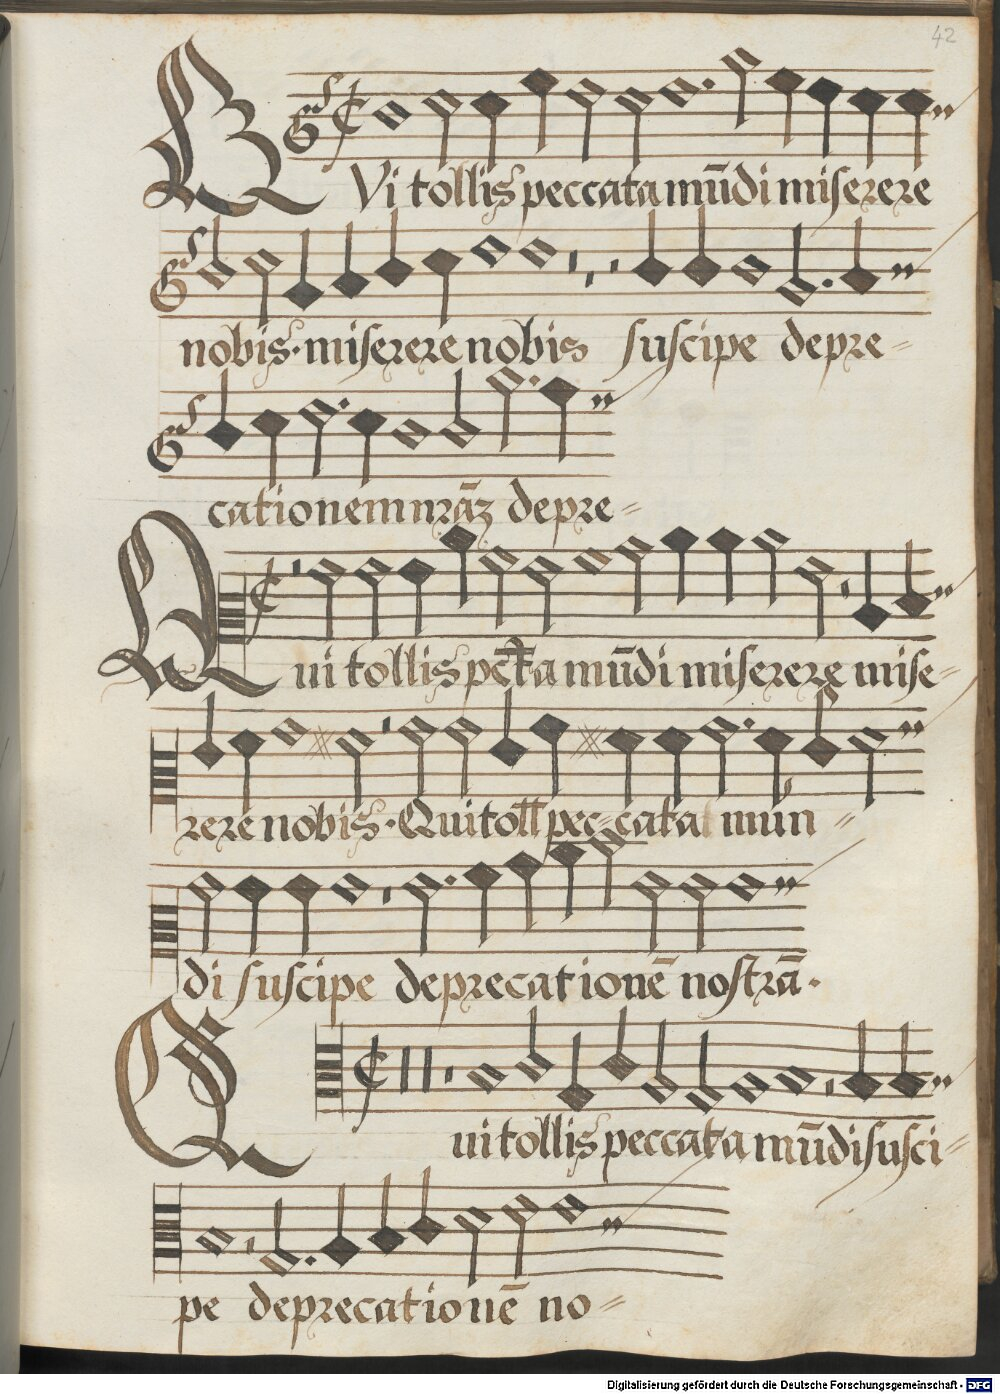 42
QVi tollis peccata mūdi miserere
nobis· miserere nobis suscipe depre=
cationem nrāʒ depre=
Qui tollis pct̄a mūdi miserere mise=
rere nobis· Qui toll̄ pec=cata mun=
di suscipe deprecationē nostrā·
Qui tollis peccata mūdi susci=
pe deprecationē no=
Digitalisierung gefördert durch die Deutsche Forschungsgemeinschaft - DFG